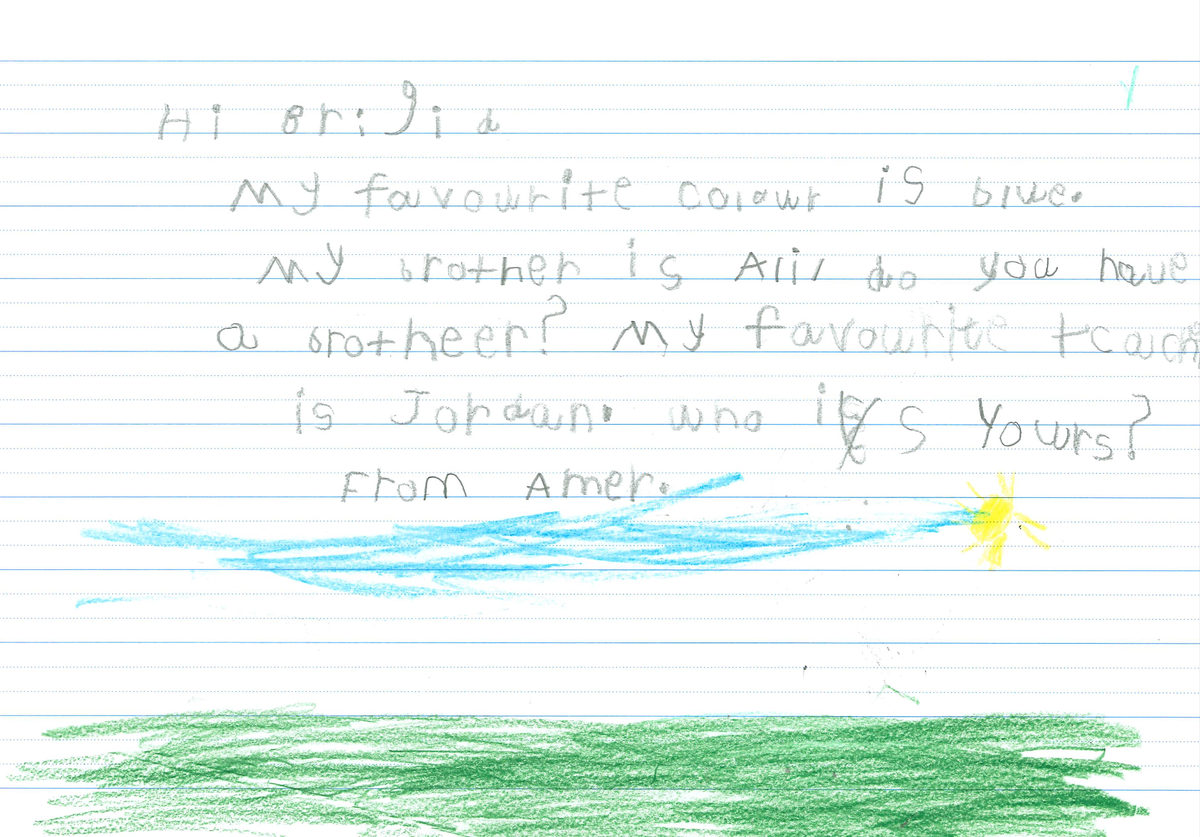 Hi Brigid
My favourite colour is blue.
My brother is Ali, do you have
a brotheer? My favourite teach
is Jordan. who is yours?
From Amer.